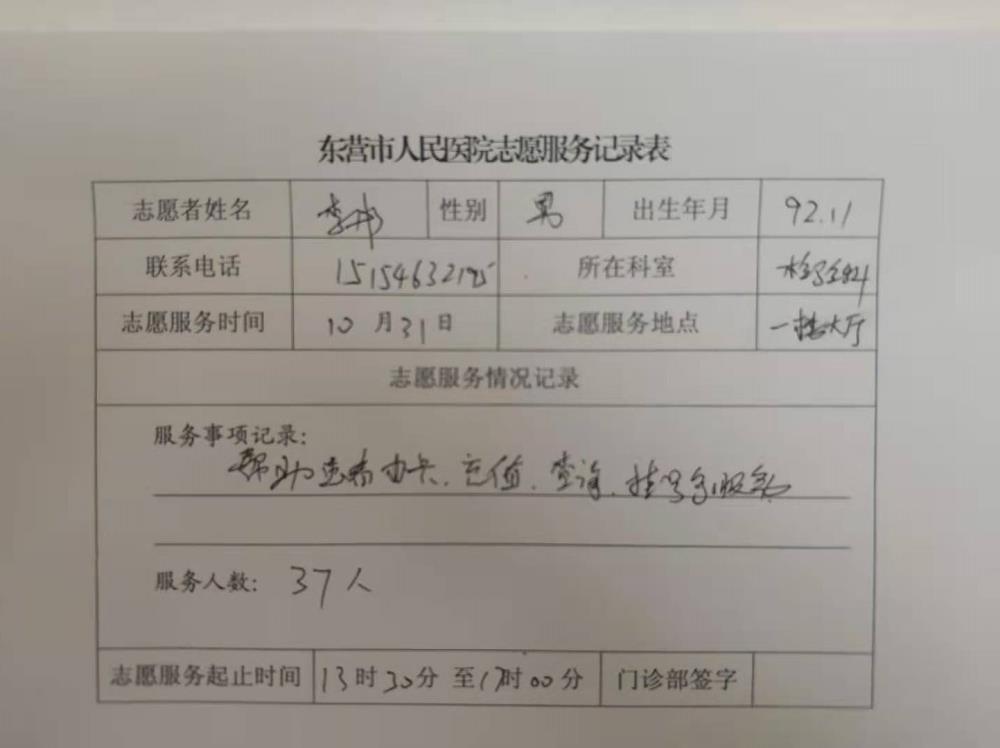 东营市人民医院志愿服务记录表
志愿者姓名 李 性别 男 出生年月 92.11
联系电话 15154632195 所在科室
志愿服务时间 10月31日 志愿服务地点 一楼大厅
志愿服务情况记录
服务事项记录:
帮助患者办卡、充值、查询、挂号等服务
服务人数: 37人
志愿服务起止时间 13时30分 至17时00分 门诊部签字